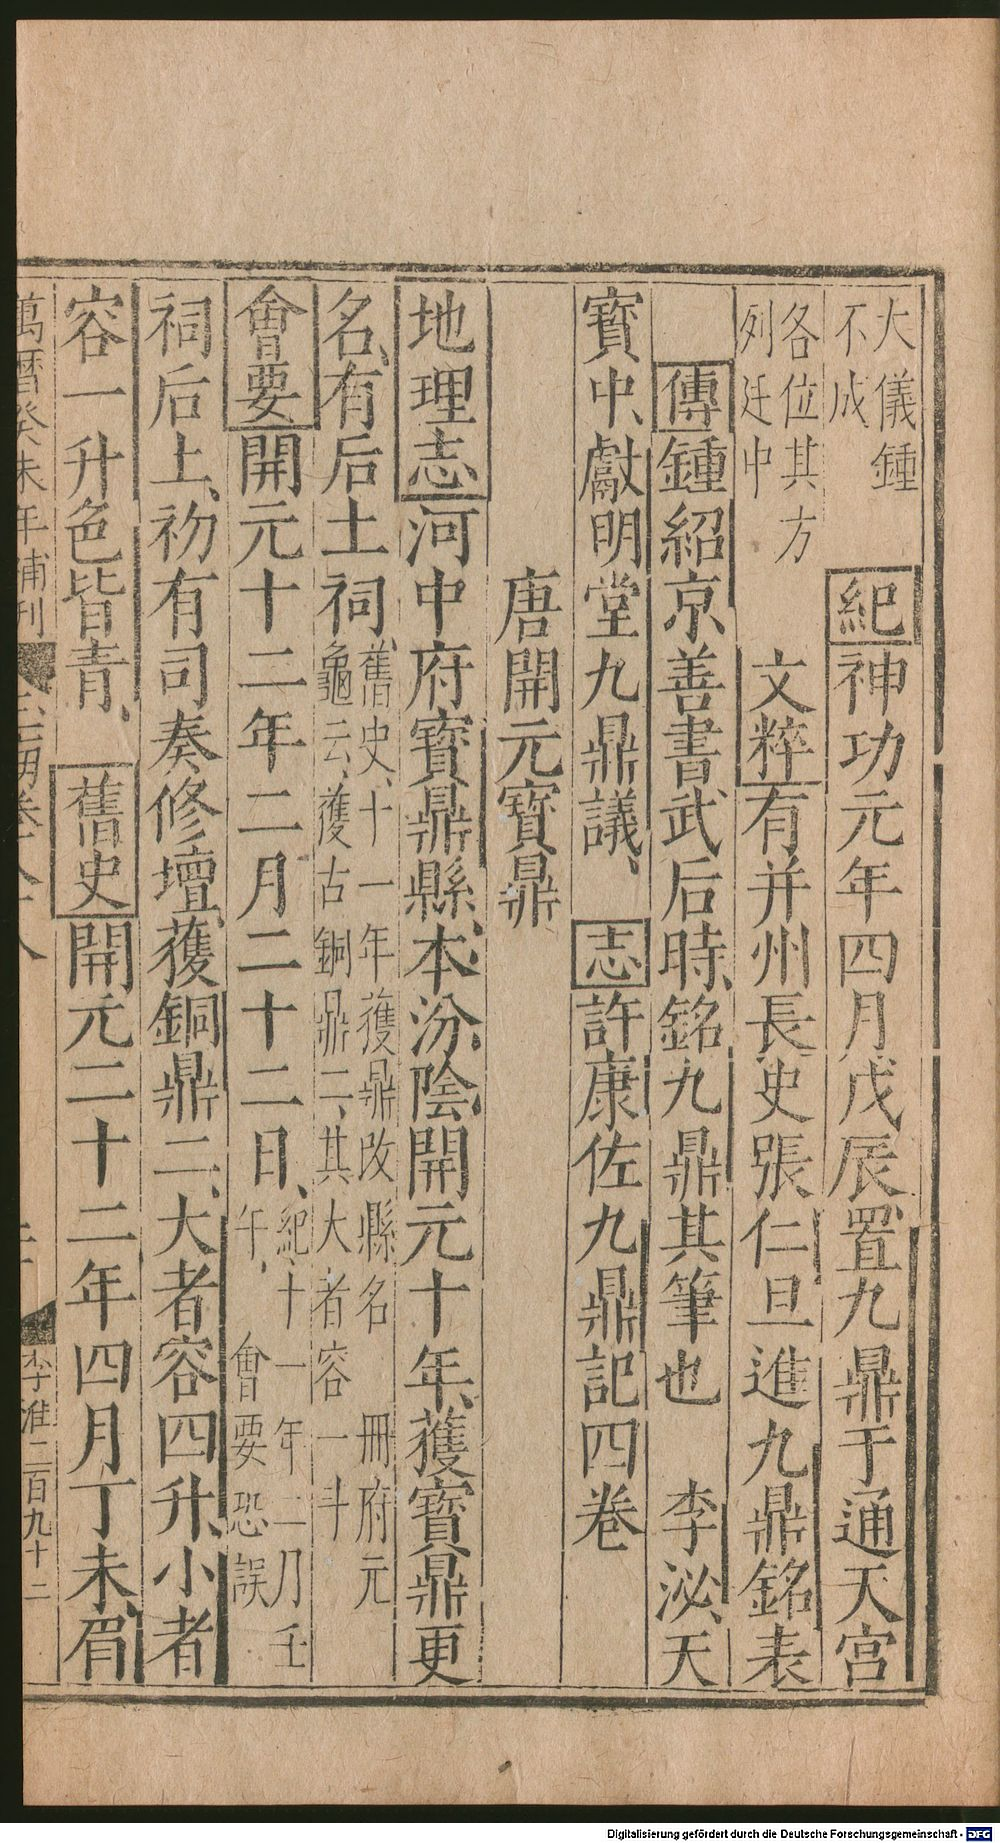 大儀鍾
不成
紀神功元年四月戊辰置九鼎于通天宮
各位其方
列廷中
文粹有并州長史張仁亶進九鼎銘表
傳鍾紹京善書武后時銘九鼎其筆也　李泌天
寳中獻明堂九鼎議　志許康佐九鼎記四卷
唐開元寳鼎
地理志河中府寳鼎縣本汾陰開元十年獲寳鼎更
名有后土祠
舊史十一年獲鼎改縣名　冊府元
龜云獲古銅鼎二其大者容一斗
會要開元十二年二月二十二日
紀十一年二月壬
午會要恐誤
祠后土初有司奏修壇獲銅鼎二大者容四升小者
容一升色皆青　舊史開元二十二年四月丁未眉
萬曆癸未年補刊
卷八十八
李淮二百九十二
Digitalisierung gefördert durch die Deutsche Forschungsgemeinschaft - DFG